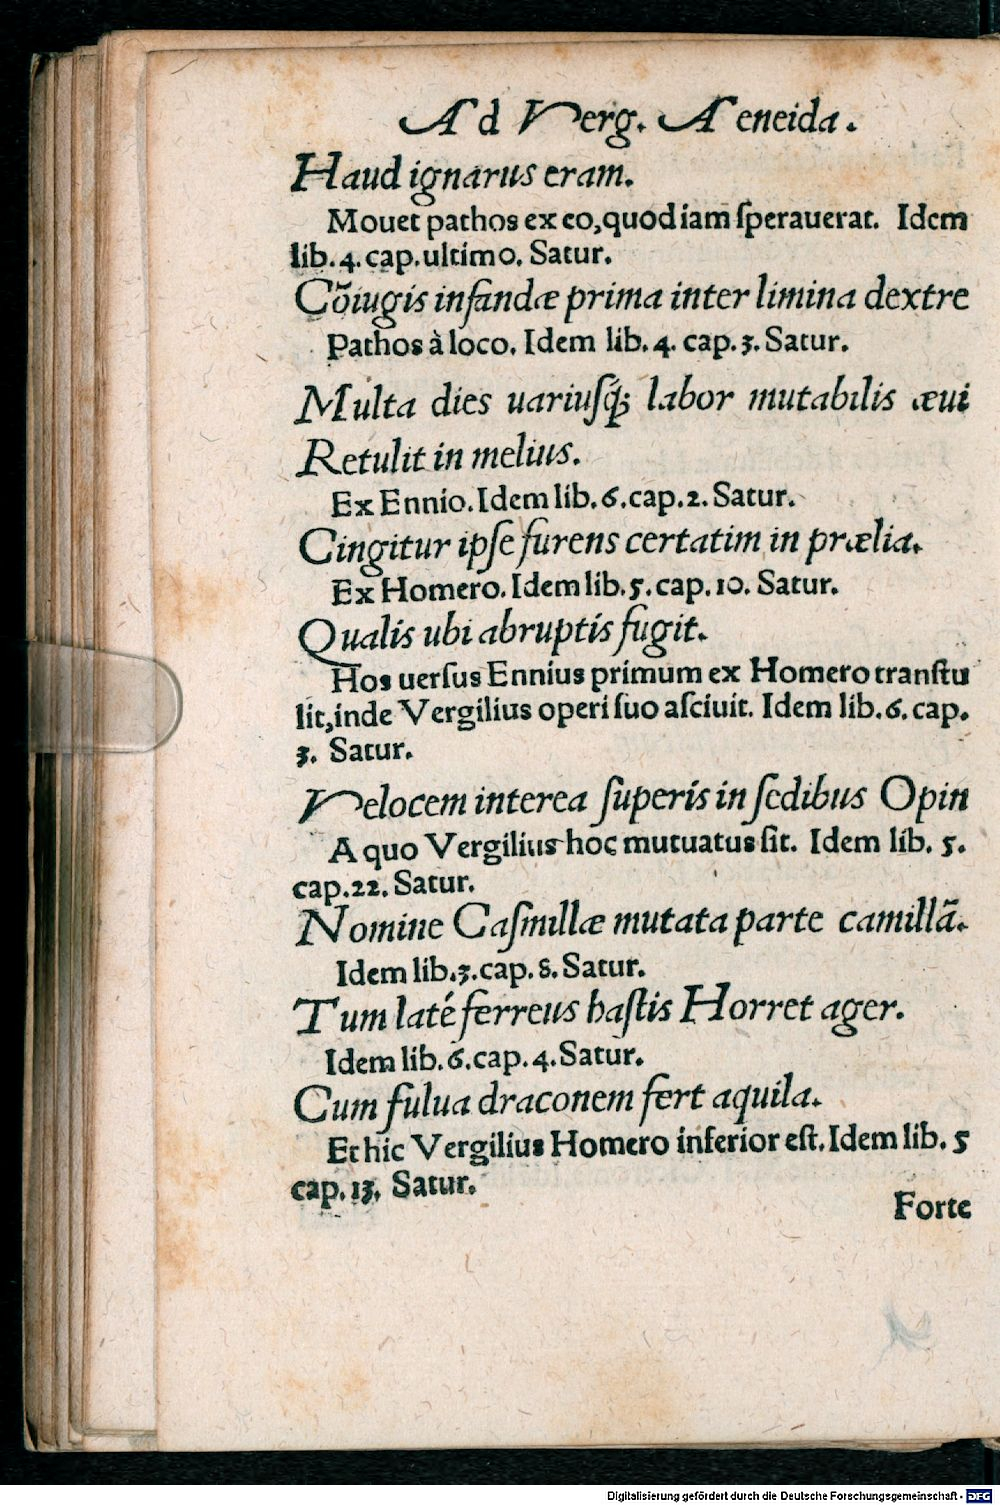 Ad Verg. Aeneida.
Haud ignarus eram.
Mouet pathos ex eo, quod iam ſperauerat. Idem
lib. 4. cap. ultimo. Satur.
Cõiugis infandæ prima inter limina dextre
Pathos à loco. Idem lib. 4. cap. 3. Satur.
Multa dies uariuſq́; labor mutabilis æui
Retulit in melius.
Ex Ennio. Idem lib. 6. cap. 2. Satur.
Cingitur ipſe furens certatim in prælia.
Ex Homero. Idem lib. 5. cap. 10. Satur.
Qualis ubi abruptis fugit.
Hos uerſus Ennius primum ex Homero tranſtu
lit, inde Vergilius operi ſuo aſciuit. Idem lib. 6. cap.
3. Satur.
Velocem interea ſuperis in ſedibus Opin
A quo Vergilius hoc mutuatus ſit. Idem lib. 5.
cap. 22. Satur.
Nomine Caſmillæ mutata parte camillã.
Idem lib. 3. cap. 8. Satur.
Tum laté ferreus haſtis Horret ager.
Idem lib. 6. cap. 4. Satur.
Cum fulua draconem fert aquila.
Et hic Vergilius Homero inferior eſt. Idem lib. 5
cap. 13. Satur.
Forte
Digitalisierung gefördert durch die Deutsche Forschungsgemeinschaft - DFG